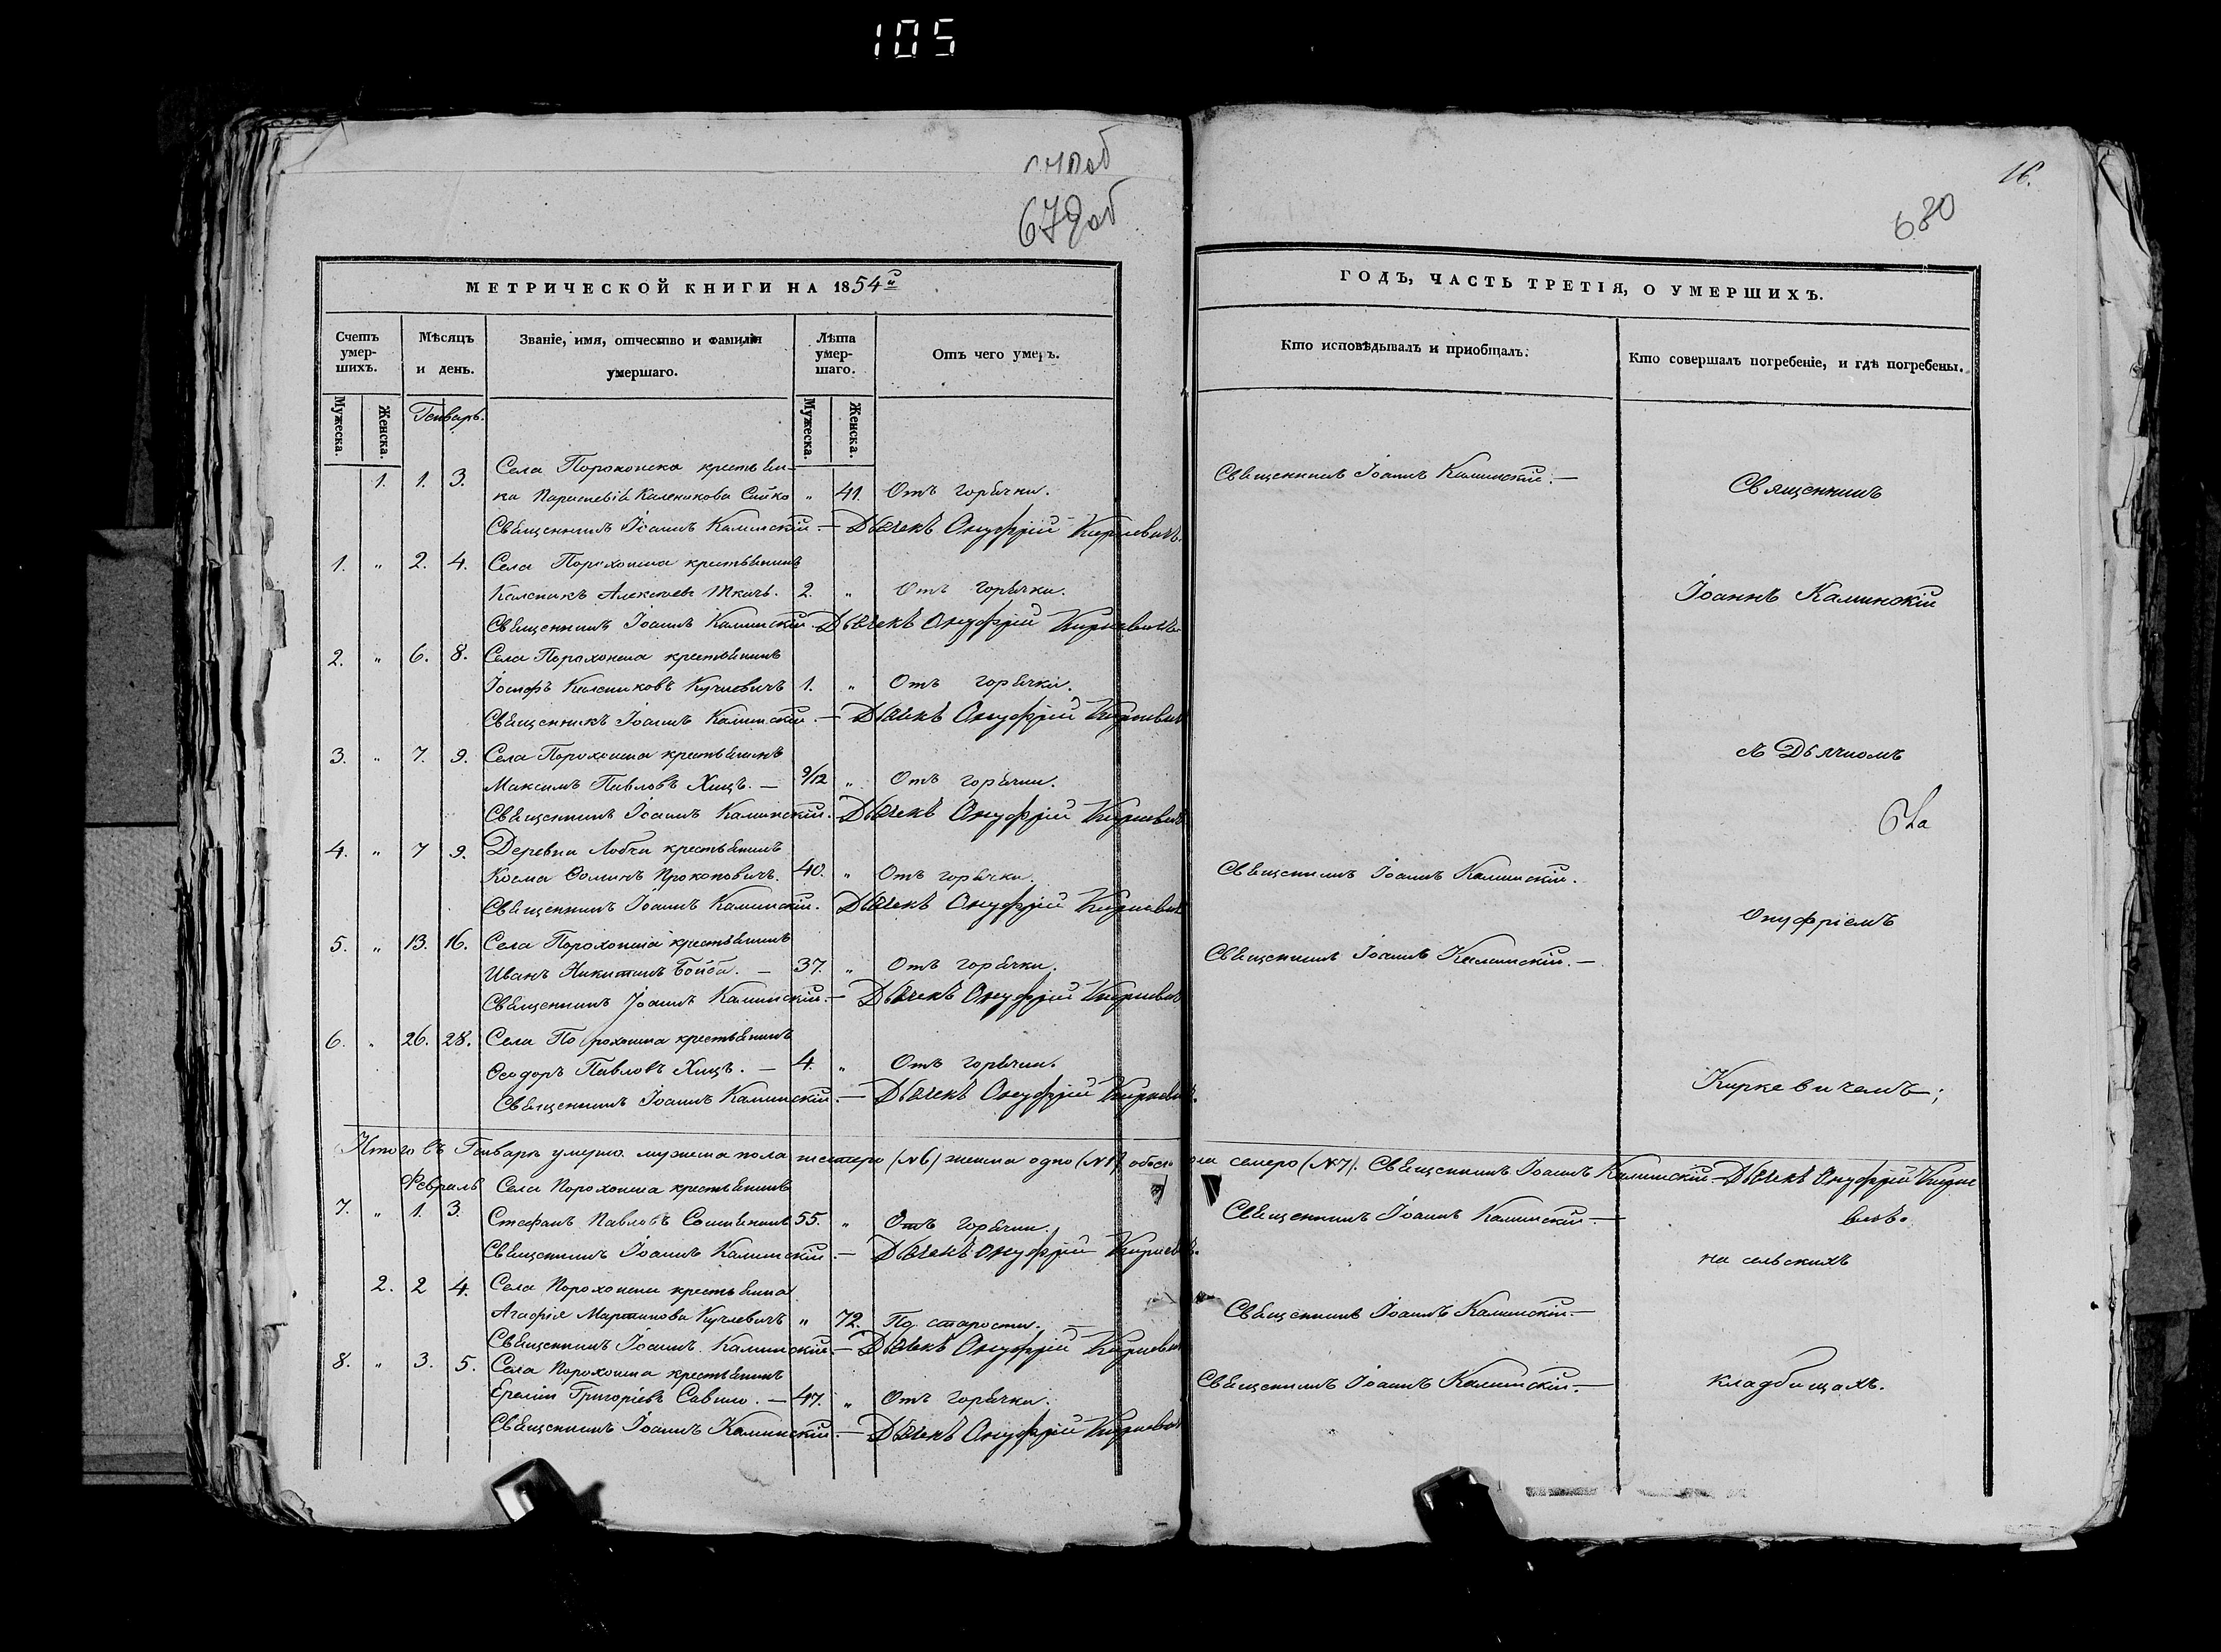 105
679об
16.
680
МЕТРИЧЕСКОЙ КНИГИ НА 1854й
Счетъ умер-шихъ.
Мѣсяцъ и день.
Званіе, имя, отчество и фамилія умершаго.
Лѣта умер-шаго.
Отъ чего умеръ.
Мужеска.
Женска.
Мужеска.
Женска.
Генварь.
1. 1. 3. Села Порохонска крестьян-
ка Параскевія Каленикова Сийко „ 41. Отъ горячки.
Священникъ Іоаннъ Каминскій. — Дьячекъ Онуфрій Киркевичъ.
1. „ 2. 4. Села Порохонска крестьянинъ
Каленикъ Алексѣевъ Ткачъ. 2. „ Отъ горячки.
Священникъ Іоаннъ Каминскій. Дьячекъ Онуфрій Киркевичъ.
2. „ 6. 8. Села Порохонска крестьянинъ
Іосифъ Калениковъ Кучкевичъ 1. „ Отъ горячки.
Священникъ Іоаннъ Каминскій. — Дьячекъ Онуфрій Киркевичъ
3. „ 7. 9. Села Порохонска крестьянинъ
Максимъ Павловъ Хицъ. — 9/12 „ Отъ горячки.
Священникъ Іоаннъ Каминскій. — Дьячекъ Онуфрій Киркевичъ
4. „ 7 9. Деревни Лобчи крестьянинъ
Косма Ѳоминъ Прокоповичъ. 40. „ Отъ горячки.
Священникъ Іоаннъ Каминскій. Дьячекъ Онуфрій Киркевичъ
5. „ 13. 16. Села Порохонска крестьянинъ
Иванъ Никитинъ Бойба. — 37. „ Отъ горячки.
Священникъ Іоаннъ Каминскій. — Дьячекъ Онуфрій Киркевичъ
6. „ 26. 28. Села Порохонска крестьянинъ
Ѳеодоръ Павловъ Хицъ. — 4. „ Отъ горячки.
Священникъ Іоаннъ Каминскій. — Дьячекъ Онуфрій Киркевичъ.
Итого въ Генварѣ умерло мужеска пола шестеро (№6) женска одно (№1) обоего
Февраль
7. „ 1. 3. Села Порохонска крестьянинъ
Стефанъ Павловъ 55. „ Отъ горячки.
Священникъ Іоаннъ Каминскій. — Дьячекъ Онуфрій Киркевичъ.
2. 2 4. Села Порохонска крестьянка
Агафія Мартинова Кучкевичъ „ 72. По старости. —
Священникъ Іоаннъ Каминскій. — Дьячекъ Онуфрій Киркевичъ
8. „ 3. 5. Села Порохонска крестьянинъ
Григоріевъ Савило. — 47. „ Отъ горячки.
Священникъ Іоаннъ Каминскій. — Дьячекъ Онуфрій Киркевичъ
ГОДЪ, ЧАСТЬ ТРЕТІЯ, О УМЕРШИХЪ.
Кто исповѣдывалъ и пріобщалъ.
Кто совершалъ погребеніе, и гдѣ погребены.
Священникъ Іоаннъ Каминскій. —
Священникъ
Іоаннъ Каминскій
съ Дьячкомъ
Священникъ Іоаннъ Каминскій.
Онуфріемъ
Священникъ Іоаннъ Каминскій. —
Киркевичемъ;
пола семеро (№7). Священникъ Іоаннъ Каминскій. — Дьячекъ Онуфрій Кирке
вичъ.
Священникъ Іоаннъ Каминскій. —
на сельскихъ
Священникъ Іоаннъ Каминскій. —
Священникъ Іоаннъ Каминскій. —
кладбищахъ.